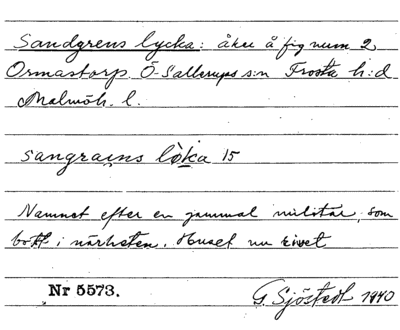 Sandgrens lycka: åker å fig num 2
Ormastorp Ö-Sallerups s:n Frosta h:d
Malmöh. l.
sangrains lòka 15
Namnet efter en gammal militär, som
bott i närheten. Huset nu rivet
Nr 5573.
G. Sjöstedt 1940